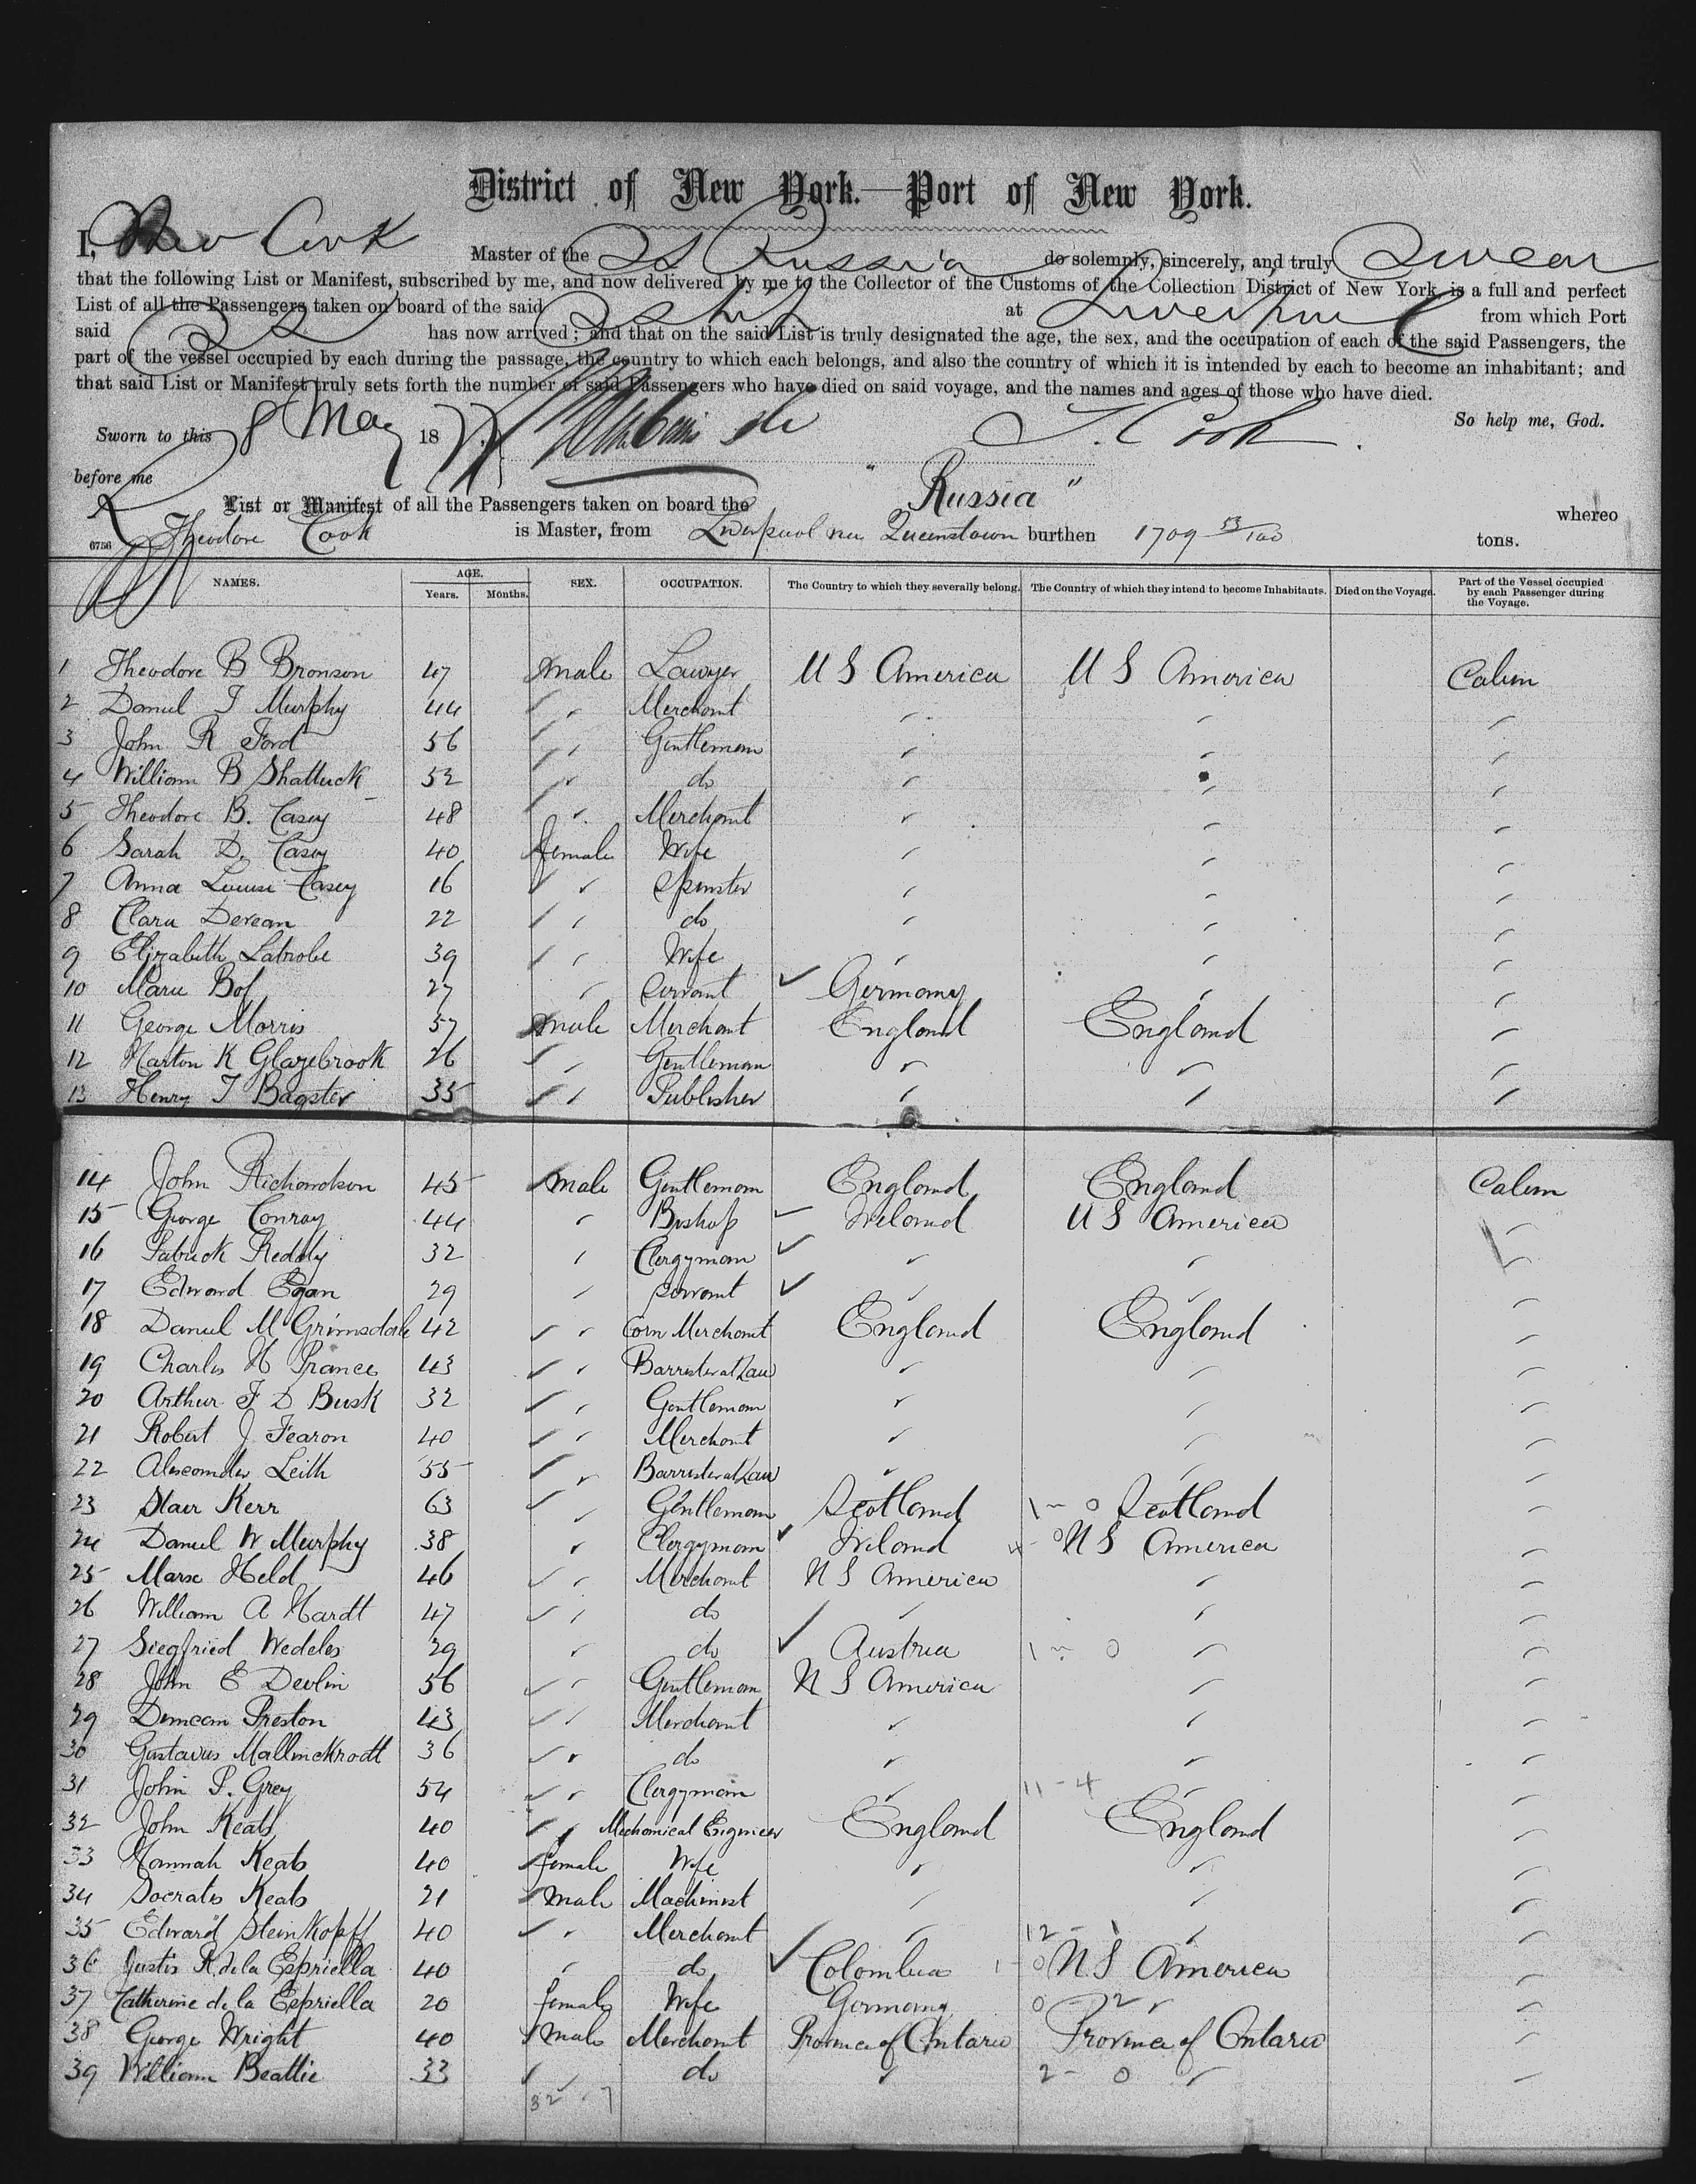 District of New York.—Port of New York.
I, Theo Cook Master of the SS Russia do solemnly, sincerely, and truly Swear
that the following List or Manifest, subscribed by me, and now delivered by me to the Collector of the Customs of the Collection District of New York, is a full and perfect
List of all the Passengers taken on board of the said at Liverpool from which Port
said has now arrived; and that on the said List is truly designated the age, the sex, and the occupation of each of the said Passengers, the
part of the vessel occupied by each during the passage, the country to which each belongs, and also the country of which it is intended by each to become an inhabitant; and
that said List or Manifest truly sets forth the number of said Passengers who have died on said voyage, and the names and ages of those who have died.
Sworn to this 8 May 1877 T. Cook. So help me, God.
before me
List or Manifest of all the Passengers taken on board the "Russia" whereo
6756 Theodore Cook is Master, from Liverpool via Queenstown burthen 1709 53/100 tons.
NAMES. AGE. Years. Months. SEX. OCCUPATION. The Country to which they severally belong. The Country of which they intend to become Inhabitants. Died on the Voyage. Part of the Vessel occupied by each Passenger during the Voyage.
1 Theodore B Bronson 47 male Lawyer U S America U S America Cabin
2 Daniel T Murphy 44 " " Merchant " " "
3 John R Ford 56 " " Gentleman " " "
4 William B Shattuck 52 " " do " " "
5 Theodore B. Casey 48 " " Merchant " " "
6 Sarah D. Casey 40 female Wife " " "
7 Anna Louise Casey 16 " " Spinster " " "
8 Clara Derean 22 " " do " " "
9 Elizabeth Latrobe 39 " " Wife " " "
10 Marie Bof 27 " Servant Germany " "
11 George Morris 57 male Merchant England England "
12 Harton K Glazebrook 26 " " Gentleman " " "
13 Henry T Bagster 35 " " Publisher " " "
14 John Richardson 45 male Gentleman England England Cabin
15 George Conroy 44 " Bishop Ireland U S America "
16 Patrick Reddy 32 " Clergyman " " "
17 Edward Egan 29 " Servant " " "
18 Daniel M Grimsdale 42 " " Corn Merchant England England "
19 Charles H Prance 43 " " Barrister at Law " " "
20 Arthur F D Busk 32 " " Gentleman " " "
21 Robert J Fearon 40 " " Merchant " " "
22 Alexander Leith 55 " " Barrister at Law " " "
23 Stair Kerr 63 " " Gentleman Scotland Scotland "
24 Daniel W Murphy 38 " Clergyman Ireland U S America "
25 Marx Held 46 " " Merchant U S America " "
26 William A Hardt 47 " " do " " "
27 Siegfried Wedeles 29 " do Austria " "
28 John E Devlin 56 " " Gentleman U S America " "
29 Duncan Preston 43 " " Merchant " " "
30 Gustavus Mallinckrodt 36 " " do " " "
31 John P. Grey 54 " " Clergyman " 11 - 4 " "
32 John Keats 40 " " Mechanical Engineer England England "
33 Hannah Keats 40 female Wife " " "
34 Socrates Keats 21 male Machinist " " "
35 Edward Steinkopff 40 " " Merchant " 12 - 1 " "
36 Justis R. de la Espriella 40 " do Colombia U S America "
37 Catherine de la Espriella 20 female Wife Germany 0 - 2 " "
38 George Wright 40 male Merchant Province of Ontario Province of Ontario "
39 William Beattie 33 " " do " 2 - 0 " "
32 - 7